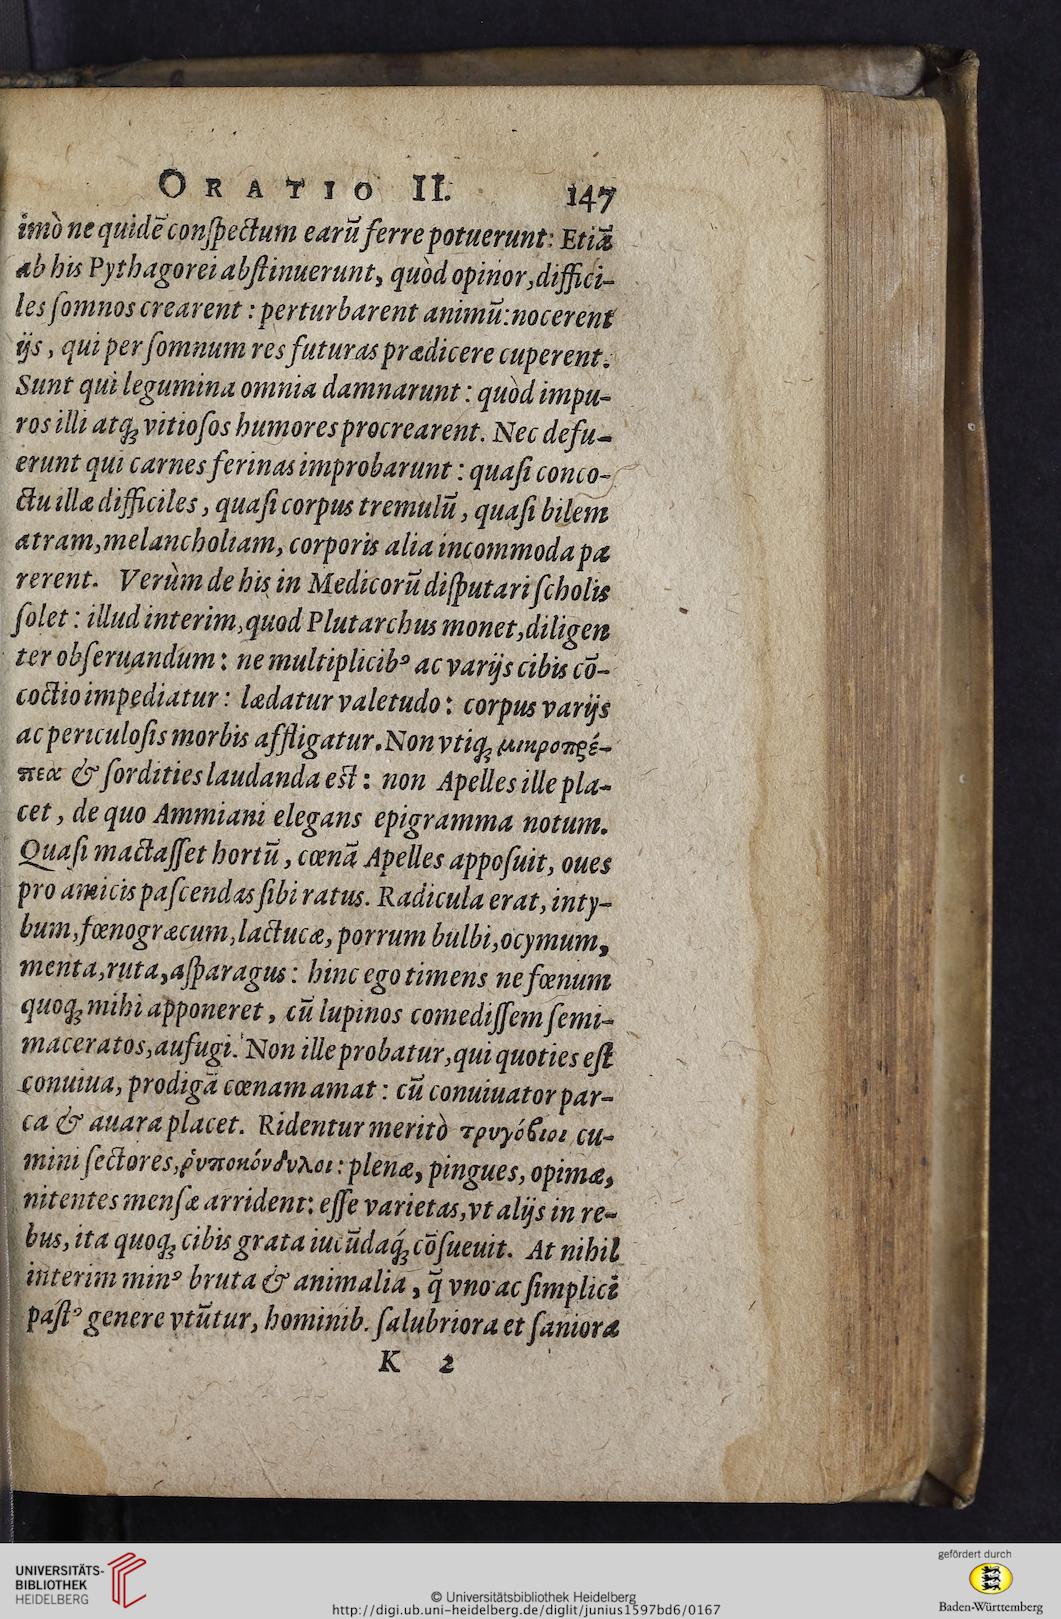 ORATIO II. 147
imò ne quidē conſpectum earū ferre potuerunt: Etiā
ab his Pythagorei abſtinuerunt, quòd opinor, diffici-
les ſomnos crearent : perturbarent animū: nocerent
ijs, qui per ſomnum res futuras prædicere cuperent.
Sunt qui legumina omnia damnarunt : quòd impu-
ros illi atq́ue vitioſos humores procrearent. Nec defu-
erunt qui carnes ferinas improbarunt : quaſi conco-
ctu illæ difficiles, quaſi corpus tremulū, quaſi bilem
atram, melancholiam, corporis alia incommoda pa
rerent. Verùm de his in Medicorū diſputari ſcholis
ſolet : illud interim, quod Plutarchus monet, diligen
ter obſeruandum : ne multiplicibꝰ ac varijs cibis cō-
coctio impediatur : lædatur valetudo : corpus varijs
ac periculoſis morbis affligatur. Non vtiqꝫ μικροπρέ-
πεια & ſordities laudanda eſt : non Apelles ille pla-
cet, de quo Ammiani elegans epigramma notum.
Quaſi mactaſſet hortū, cœnā Apelles appoſuit, oues
pro amicis paſcendas ſibi ratus. Radicula erat, inty-
bum, fœnogræcum, lactucæ, porrum bulbi, ocymum,
menta, ruta, aſparagus : hinc ego timens ne fœnum
quoqꝫ mihi apponeret, cū lupinos comediſſem ſemi-
maceratos, aufugi. Non ille probatur, qui quoties eſt
conuiua, prodigā cœnam amat : cū conuiuator par-
ca & auara placet. Ridentur meritò τρυγόβιοι cu-
mini ſectores, ῥυποκόνδυλοι : plenæ, pingues, opimæ,
nitentes menſæ arrident : eſſe varietas, vt alijs in re-
bus, ita quoqꝫ cibis grata iucūdaq́ꝫ cōſueuit. At nihil
interim minꝰ bruta & animalia, q̄ vno ac ſimplici
paſtꝰ genere vtūtur, hominib. ſalubriora et ſaniora
K 2
UNIVERSITÄTS-
BIBLIOTHEK
HEIDELBERG
© Universitätsbibliothek Heidelberg
http://digi.ub.uni-heidelberg.de/diglit/junius1597bd6/0167
gefördert durch
Baden-Württemberg